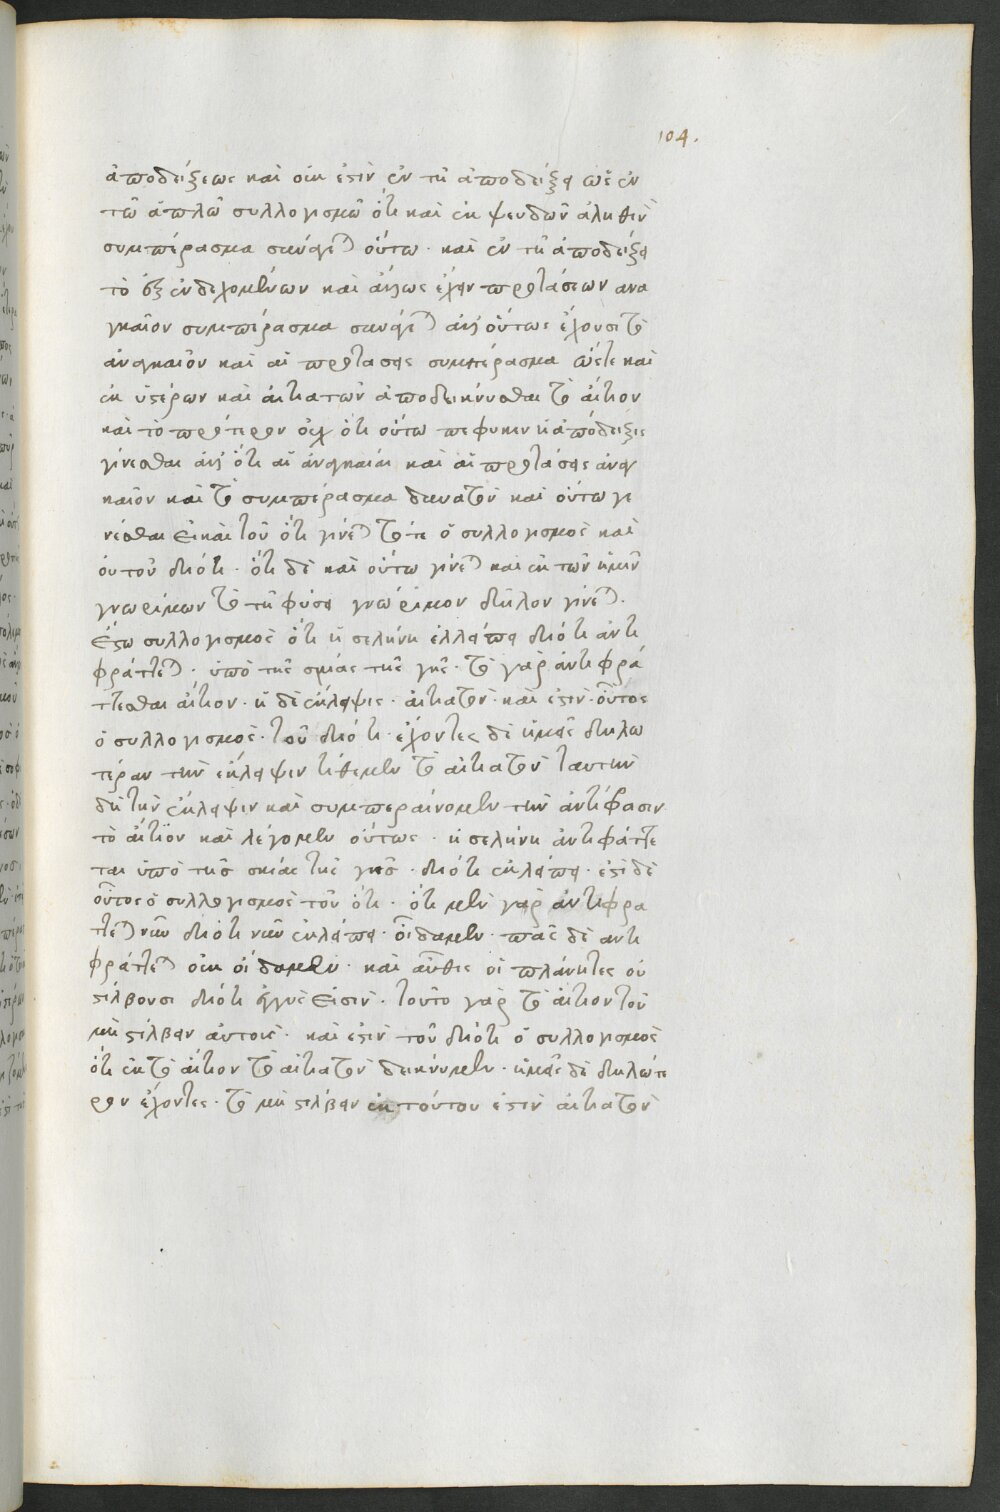 104.
ἀποδείξεως καὶ οὐκ ἐστὶν ἐν τῇ ἀποδείξει ὡς ἐν
τῶ ἁπλῶ συλλογισμῶ ὅτι καὶ ἐκ ψευδῶν ἀληθὲν
συμπέρασμα συνάγεται οὕτω · καὶ ἐν τῇ ἀποδείξει
τὸ ἐξ ἐνδεχομένων καὶ ἄλλως ἔχειν προτάσεων ανα
γκαῖον συμπέρασμα συνάγεται ἀλλ' οὕτως ἔχουσι τὸ
ἀναγκαῖον καὶ αἱ προτάσεις συμπέρασμα ὥστε καὶ
ἐκ ὑστέρων καὶ αἰτιατῶν ἀποδεικνυσθαι τὸ αἴτιον
καὶ τὸ πρότερον οὐχ ὅτι οὕτω πεφυκεν ἡ ἀπόδειξις
γίνεσθαι ἀλλ' ὅτι αἱ ἀναγκαιαι καὶ αἱ προτάσεις ἀναγ
καῖον καὶ τὸ συμπέρασμα δυνατὸν καὶ οὕτω γι
νέσθαι εἰ καὶ τοῦ ὅτι γίνεται τότε ὁ συλλογισμὸς καὶ
οὐ τοῦ διότι · ὅτι δὲ καὶ οὕτω γίνεται καὶ ἐκ τῶν ἡμῖν
γνωρίμων τὸ τῇ φύσει γνώριμον δῆλον γίνεται.
Ἔστω συλλογισμὸς ὅτι ἡ σελήνη ἐλλείπει διότι ἀντι
φράττεται · ὑπὸ τῆς σκιᾶς τῆς γῆς · τὸ γὰρ ἀντιφρά
ττεσθαι αἴτιον · ἡ δὲ ἔκλειψις · αἰτιατὸν · καὶ ἐστὶν οὗτος
ὁ συλλογισμὸς · τοῦ διότι · ἔχοντες δὲ ἡμεῖς δηλω
τέραν τὴν ἔκλειψιν τίθεμεν τὸ αἰτιατὸν ταυτην
δὴ τὴν ἔκλειψιν καὶ συμπεραίνομεν τὴν ἀντίφασιν
τὸ αἴτιον καὶ λέγομεν οὕτως · ἡ σελήνη ἀντιφάττε
ται ὑπὸ τῆς σκιᾶς τῆς γῆς · διότι ἐκλείπει · ἐστὶ δὲ
οὗτος ὁ συλλογισμὸς τοῦ ὅτι · ὅτι μὲν γὰρ ἀντιφρα
ττεται νῦν διότι νῦν ἐκλείπει · οἴδαμεν · πῶς δὲ αντι
φράττεται οὐκ οἴδαμεν · καὶ αὖθις οἱ πλάνητες οὐ
στίλβουσι διότι ἐγγύς εἰσιν · τοῦτο γὰρ τὸ αἴτιον τοῦ
μὴ στίλβειν αὐτοὺς · καὶ ἐστὶν τοῦ διότι ὁ συλλογισμὸς
ὅτι ἐκ τὸ αἴτιον τὸ αἰτιατὸν δεικνύμεν · ἡμεῖς δὲ δηλώτε
ρον ἔχοντες · τὸ μὴ στίλβειν ἐκ τούτου ἐστὶν αἰτιατὸν